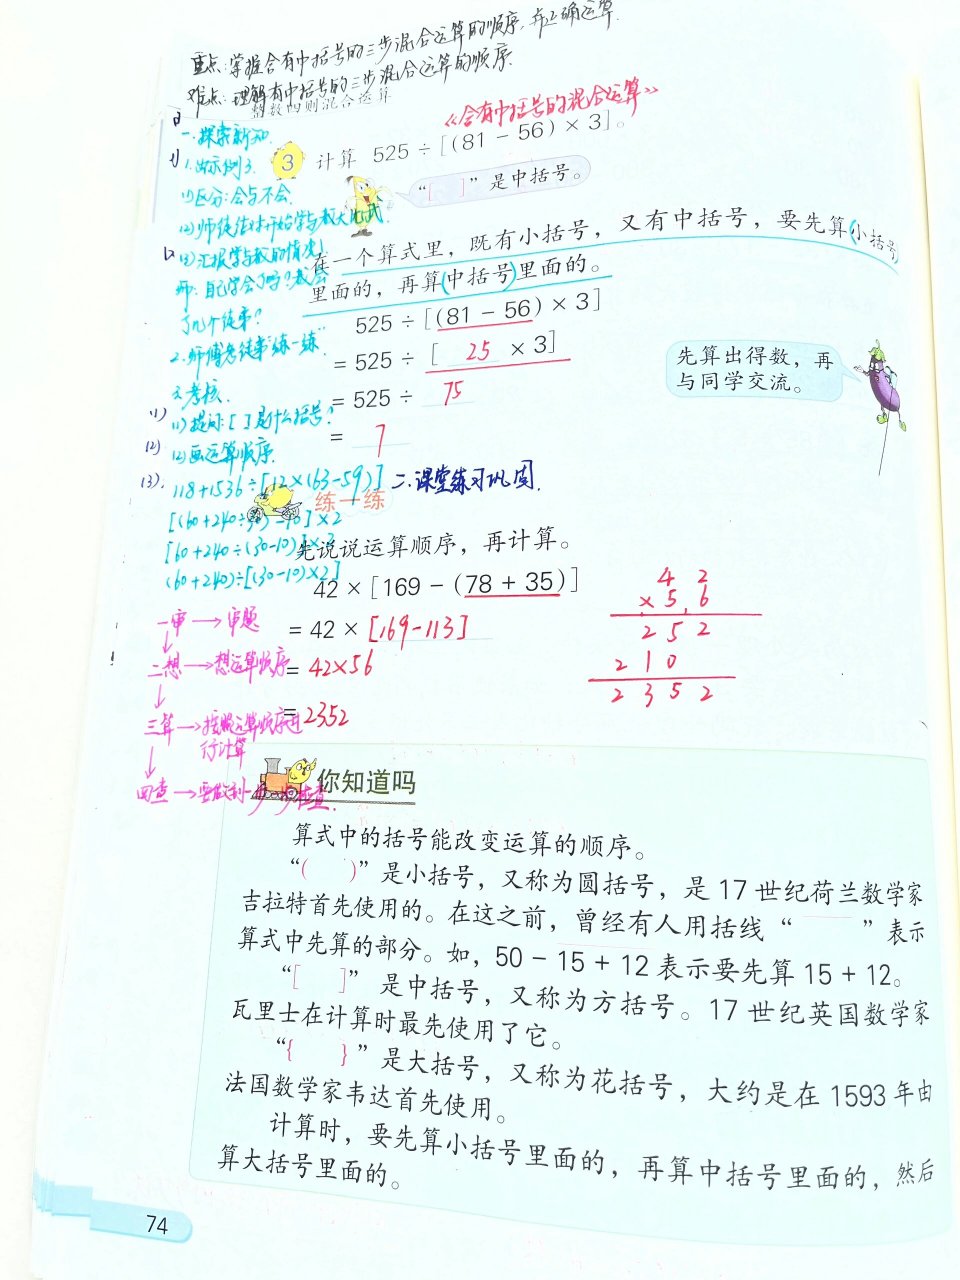 重点:掌握含有中括号的三步混合运算的顺序,并正确运算.
难点:理解有中括号的三步混合运算的顺序.
整数四则混合运算
《含有中括号的混合运算》
一.探索新知
1.出示例3.
3 计算 525 ÷ [(81 - 56) × 3]。
“[ ]”是中括号。
(1)区分:会与不会.
(3)汇报学与教的情况
在一个算式里,既有小括号,又有中括号,要先算小括号
里面的,再算中括号里面的。
师:自己学会了吗?教会
了几个徒弟?
525 ÷ [(81 - 56) × 3]
2.师傅急徒弟“练一练”
= 525 ÷ [ 25 × 3]
先算出得数,再
与同学交流。
3.考核.
= 525 ÷ 75
(1) (1)提问:[ ]是什么括号?
= 7
(2) (2)画运算顺序.
(3). 118+1536÷[12×(63-59)]
二.课堂练习巩固.
练一练
[60+240÷(30-10)]×2
先说说运算顺序,再计算。
(60+240)÷[(30-10)×2]
42 × [169 - (78 + 35)]
= 42 × [169-113]
= 42×56
= 2352
4 2
× 5 6
2 5 2
2 1 0
2 3 5 2
一审→审题
二想→想运算顺序
三算→按照运算顺序进
行计算
四查→要做到一步一步检查.
你知道吗
算式中的括号能改变运算的顺序。
“( )”是小括号,又称为圆括号,是 17 世纪荷兰数学家
吉拉特首先使用的。在这之前,曾经有人用括线“ ”表示
算式中先算的部分。如,50 - 15 + 12 表示要先算 15 + 12。
“[ ]”是中括号,又称为方括号。17 世纪英国数学家
瓦里士在计算时最先使用了它。
“{ }”是大括号,又称为花括号,大约是在 1593 年由
法国数学家韦达首先使用。
计算时,要先算小括号里面的,再算中括号里面的,然后
算大括号里面的。
74